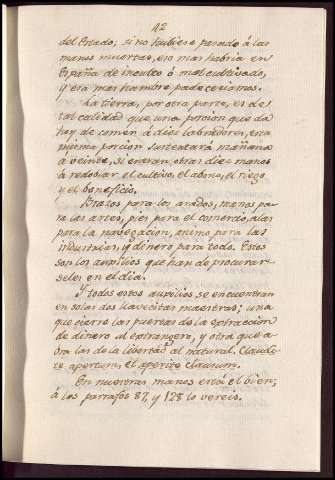 42
del Estado; si no hubiese pasado á las
manos muertas, eso mas habria en
España de inculto ó mal cultivado,
y esa mas hambre padeceriamos.
La tierra, por otra parte, es de
tal calidad que una porcion que da
hoy de comer á diez labradores, esta
misma porcion sustentará mañana
á veinte, si entran otras diez manos
á redoblar el cultivo, el abono, el riego
y el beneficio.
Brazos para los arados, manos pa-
ra las artes, pies para el comercio, alas
para la navegacion, animo para las
industrias, y dinero para todo. Estos
son los auxilios que han de procurar-
seles en el dia.
Y todos estos auxilios, se encuentran
en solas dos llavecitas maestras; una
que cierre las puertas de la extraccion
de dinero al extrangero, y otra que a-
bra las de la libertad al natural. Claudi-
te apertum, et aperite clausum.
En nuestras manos está el bien;
á los parrafos 87, y 128 lo vereis.